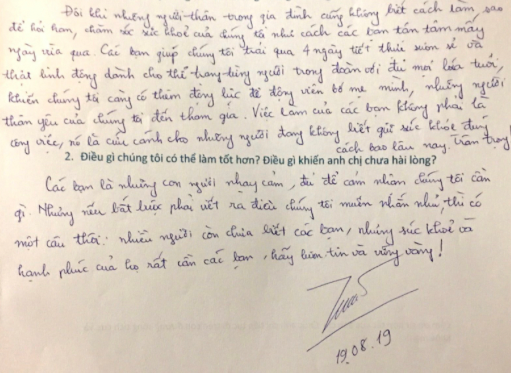 Đôi khi những người thân trong gia đình cũng không biết cách làm sao
để hỏi han, chăm sóc sức khoẻ của chúng tôi như cách các bạn tận tâm mấy
ngày vừa qua. Các bạn giúp chúng tôi trải qua 4 ngày tiết thực suôn sẻ và
thật linh động dành cho thể trạng từng người trong đoàn với đủ mọi lứa tuổi,
khiến chúng tôi càng có thêm động lực để động viên bố mẹ mình, những người
thân yêu của chúng tôi đến tham gia. Việc làm của các bạn không phải là
công việc, nó là cứu cánh cho những người đang không biết giữ sức khoẻ đúng
cách bao lâu nay. Trân trọng!
2. Điều gì chúng tôi có thể làm tốt hơn? Điều gì khiến anh chị chưa hài lòng?
Các bạn là những con người nhạy cảm, đủ để cảm nhận chúng tôi cần
gì. Nhưng nếu bắt buộc phải viết ra điều chúng tôi muốn nhắn nhủ, thì có
một câu thôi: nhiều người còn chưa biết các bạn, nhưng sức khoẻ và
hạnh phúc của họ rất cần các bạn, hãy luôn tin và vững vàng!
19.08.19